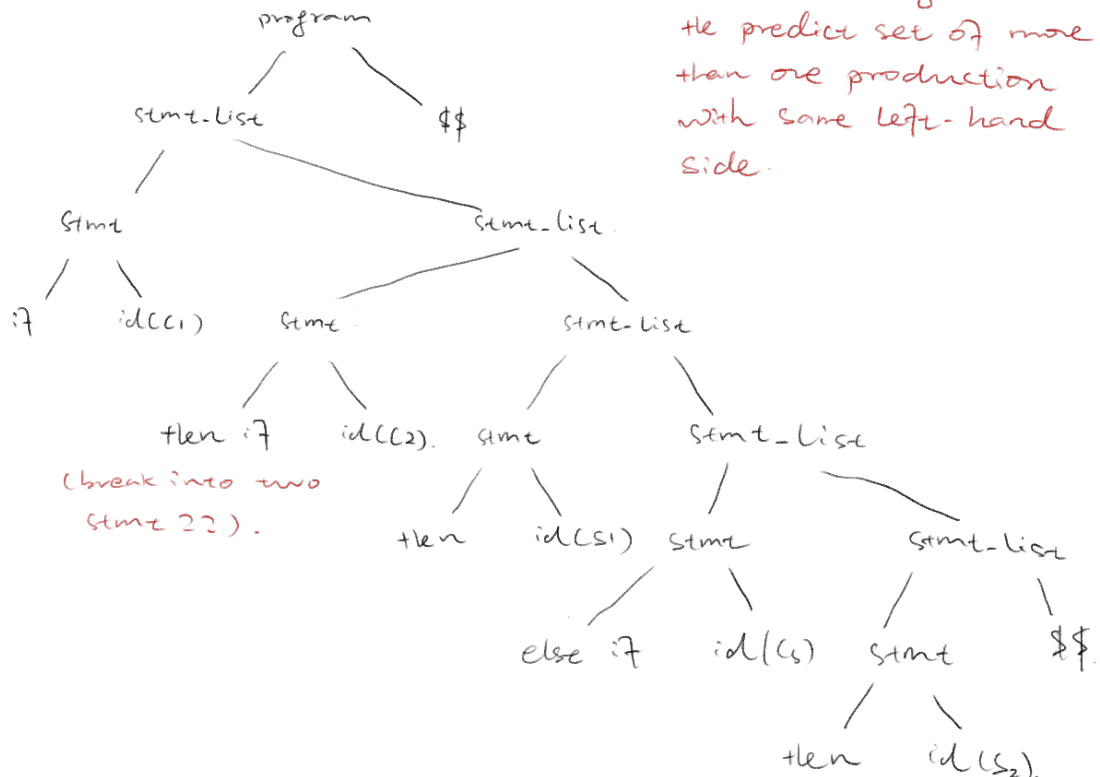 program
the predict set of more
than one production
with same left-hand
side.
stmt-list
$$
stmt
stmt_list
if
id(C1)
stmt
stmt-list
then if
id(C2).
stmt
stmt_list
(break into two
stmt ??).
then
id(S1)
stmt
stmt_list
else if
id(C3)
stmt
$$.
then
id(S2).